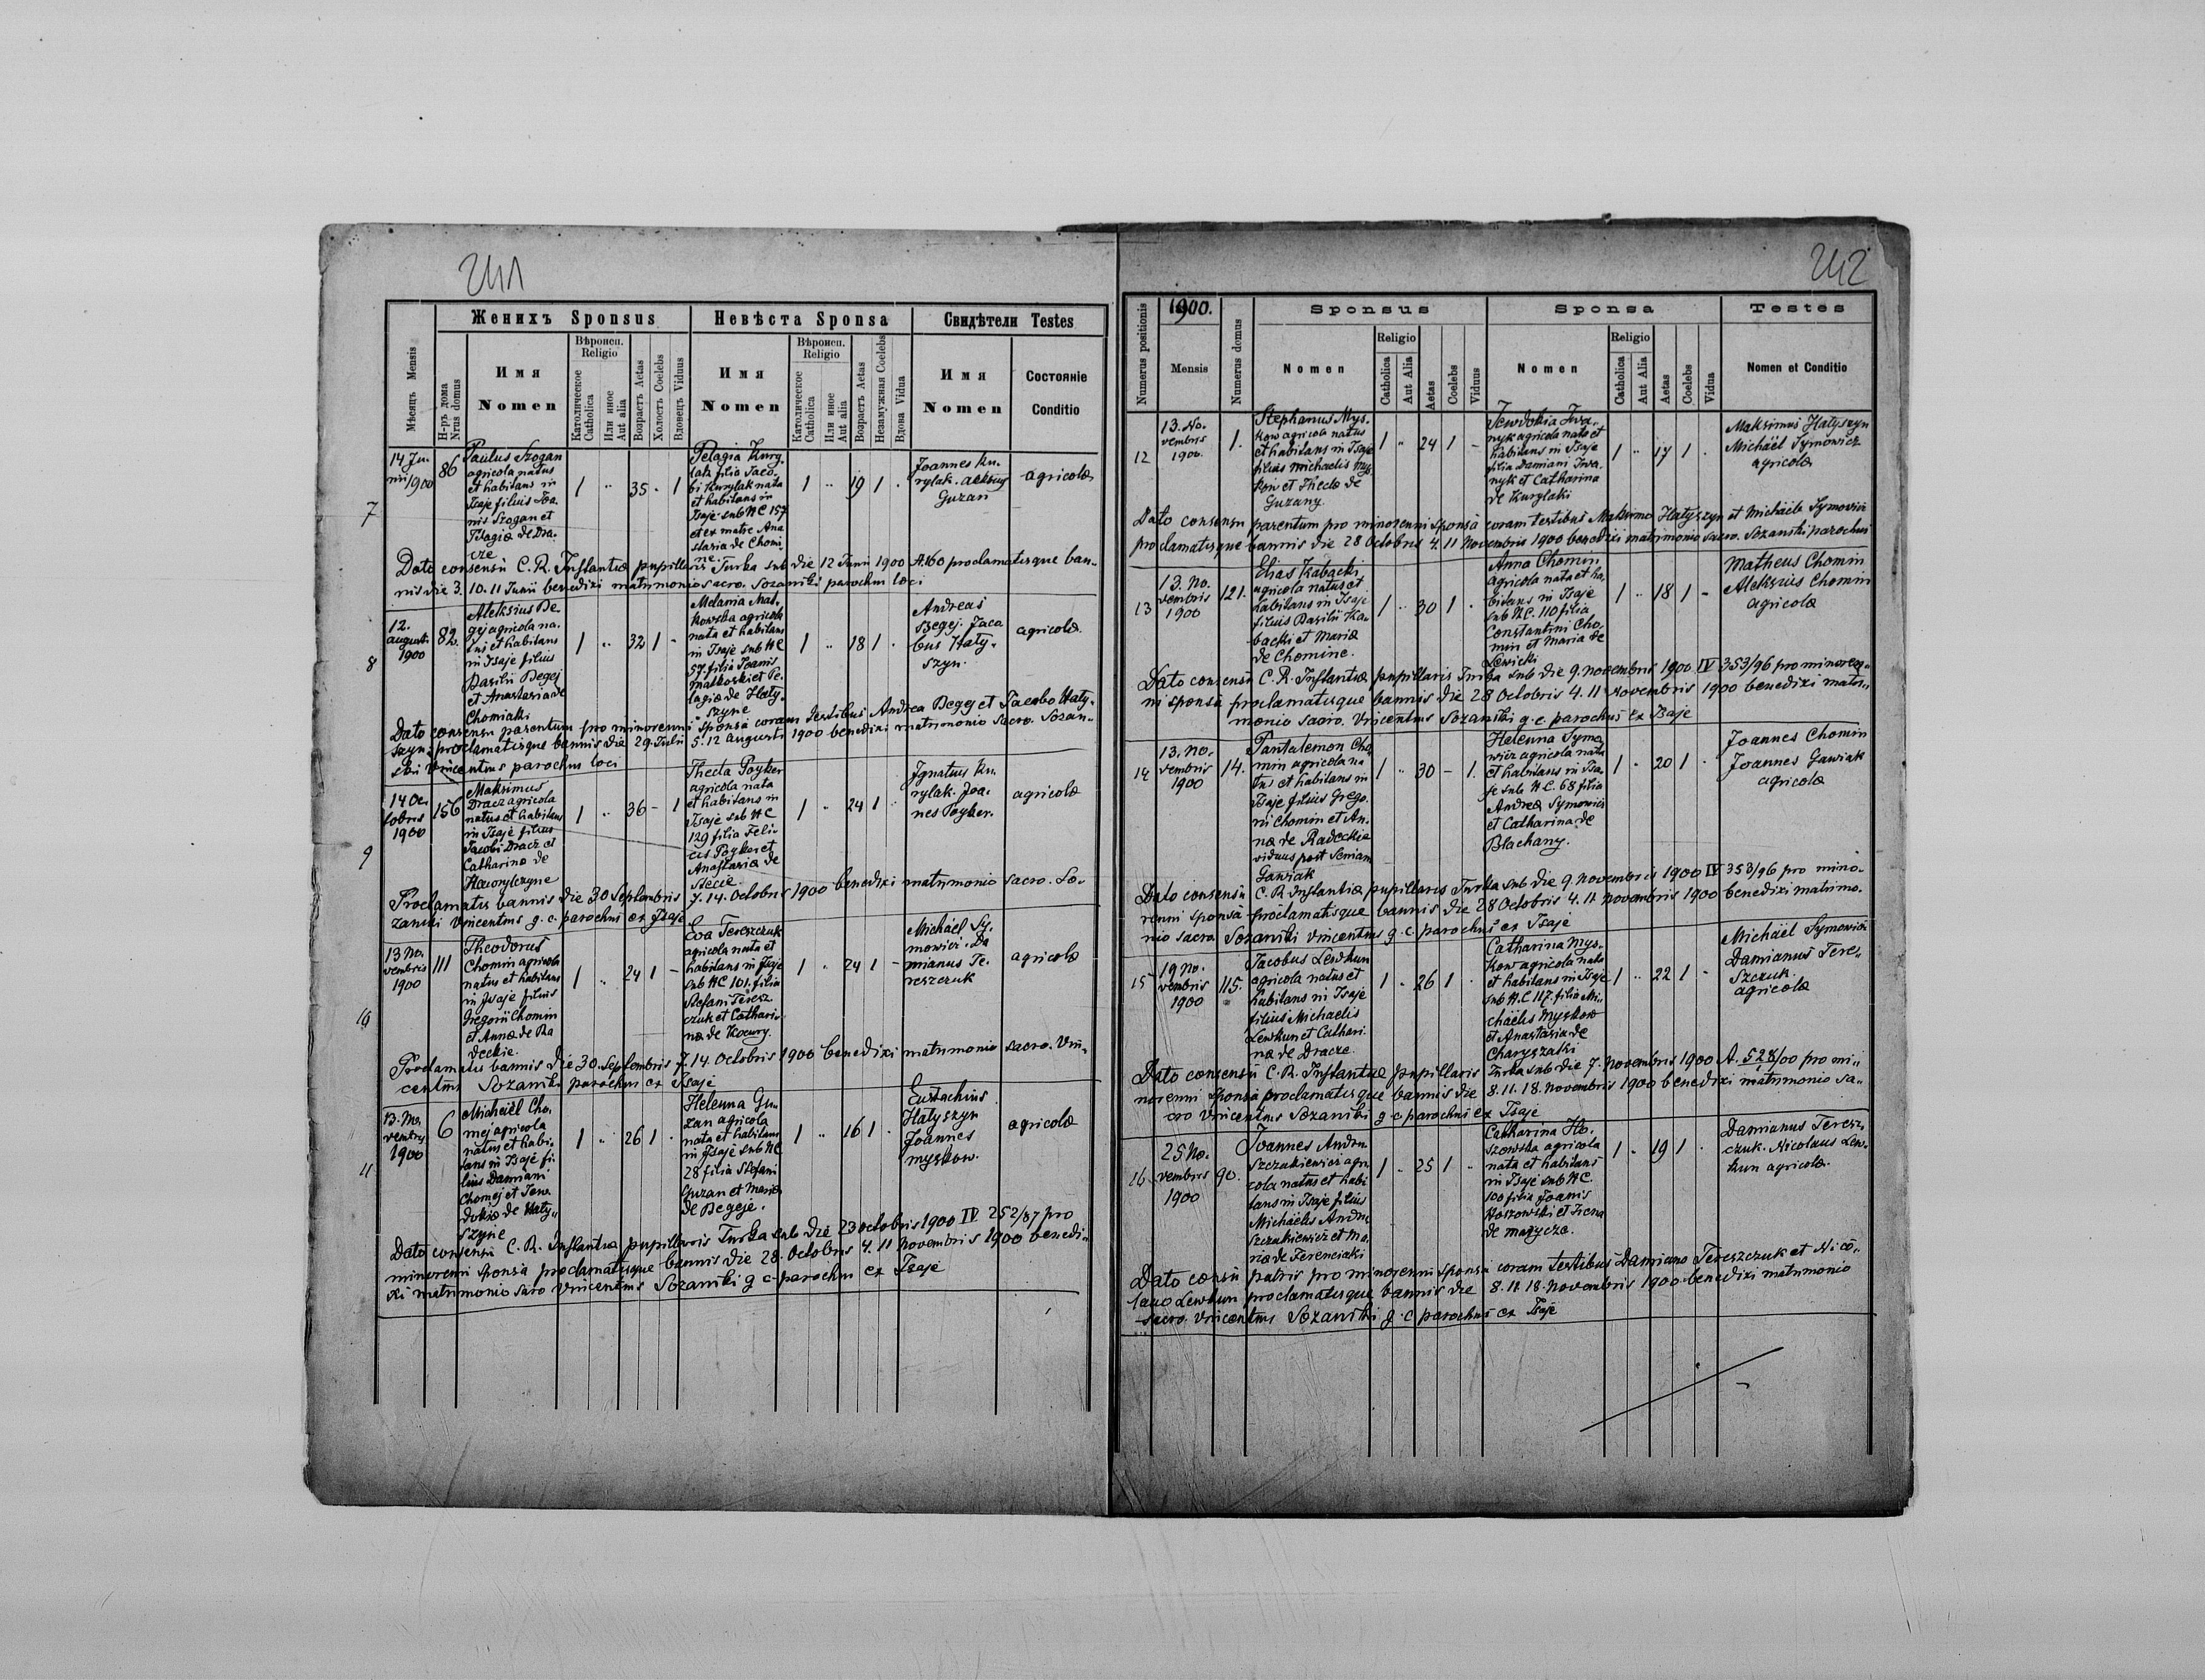 241
Женихъ Sponsus
Невѣста Sponsa
Свидѣтели Testes
Мѣсяцъ Mensis
Н-ръ дома
Nrus domus
Имя
Nomen
Вѣроисп.
Religio
Католическое
Catholica
Или иное
Aut alia
Возрастъ Aetas
Холостъ Coelebs
Вдовецъ Viduus
Имя
Nomen
Вѣроисп.
Religio
Католическое
Catholica
Или иное
Aut alia
Возрастъ Aetas
Незамужная Coelebs
Вдова Vidua
Имя
Nomen
Состояніе
Conditio
7
14 Ju-
nii 1900
86
Paulus Szogan
agricola natus
et habitans in
Isaje filius Joa-
nis Szogan et
de Dra-
cze
1 " 35 - 1
Pelagia Kury-
lak filia Jaco-
bi Kurylak nata
et habitans in
Isaje sub NC 157
et ex matre Ana-
stasia de Chomi-
ne.
1 " 19 1 .
Joannes Ku-
rylak. Aleksius
Guzan
agricolæ
Dato consensu C. R. Instantiæ pupillaris Turka sub die 12 Junii 1900 A.160 proclamatisque ban-
nis die 3. 10. 11 Junii benedixi matrimonio sacro. Sozański parochus loci
8
12.
augusti
1900
82.
Aleksius Be-
gej agricola na-
tus et habitans
in Isaje filius
Basilii Begej
et Anastasia de
Chomiaki
1 " 32 1 -
Melania Mal-
kowska agricola
nata et habitans
in Isaje sub NC
57 filia Joanis
Malkoski et Pe-
lagiæ de Haty-
szyne
1 " 18 1 .
Andreas
Begej. Jaco
bus Haty-
szyn.
agricolæ
Dato consensu parentum pro minorenni sponsa coram testibus Andrea Begej et Jacobo Haty-
szyn proclamatisque bannis die 29. Julii 5. 12 augusti 1900 benedixi matrimonio sacro. Sozań-
ski Vincentius parochus loci
9
14 Oc-
tobris
1900
156
Maksimus
Dracz agricola
natus et habitans
in Isaje filius
Jacobi Dracz et
Catharina de
Hawrylczyne
1 " 36 - 1
Thecla Poyker
agricola nata
et habitans in
Isaje sub NC
129 filia Feli-
cis Poyker et
Anastasiæ de
Stecie
1 " 24 1 .
Ignatius Ku-
rylak. Joa-
nes Poyker.
agricolæ
Proclamatis bannis die 30 Septembris 7. 14. Octobris 1900 benedixi matrimonio sacro. So-
zański Vincentius g. c. parochus ex Isaje
10
13 No-
vembris
1900
111
Theodorus
Chomin agricola
natus et habitans
in Isaje filius
Gregorii Chomin
et Annæ de Ra
deckie.
1 " 24 1 -
Eva Tereszczuk
agricola nata et
habitans in Isaje
sub NC 101. filia
Stefani Teresz-
czuk et Cathari-
næ de Kocury.
1 " 24 1 -
Michäel Sy-
mowicz. Da
mianus Te-
reszczuk
agricolæ
Proclamatis bannis die 30. Septembris 7. 14. Octobris 1900 benedixi matrimonio sacro. Vin-
centius Sozański parochus ex Isaje
11
13. No-
vembris
1900
6
Michäel Cho-
mej agricola
natus et habi-
tans in Isaje fi-
lius Damiani
Chomej et Jew-
dokiæ de Haty-
szyne
1 " 26 1 .
Helenna Gu-
zan agricola
nata et habitans
in Isaje sub NC
28 filia Stefani
Guzan et Mariæ
de Begeje.
1 " 16 1 .
Eustachius
Hatyszyn
Joannes
Myskow.
agricolæ
Dato consensu C. R. Instantiæ pupillaris Turka sub die 23 octobris 1900 IV 252/87 pro
minorenni sponsa proclamatisque bannis die 28. Octobris 4. 11 Novembris 1900 benedi-
xi matrimonio sacro Vincentius Sozański g c parochus ex Isaje
242
Numerus positionis
1900.
Mensis
Numerus domus
Sponsus
Sponsa
Testes
Nomen
Religio
Catholica
Aut Alia
Aetas
Coelebs
Viduus
Nomen
Religio
Catholica
Aut Alia
Aetas
Coelebs
Vidua
Nomen et Conditio
12
13. No-
vembris
1900.
1.
Stephanus Mys-
kow agricola natus
et habitans in Isaje
filius Michaelis Mys-
kow et Thecla de
Guzany.
1 " 24 1 -
Jewdokia Iwa-
nyk agricola nata et
habitans in Isaje
filia Damiani Iwa-
nyk et Catharina
de Kurylaki
1 " 17 1 .
Maksimus Hatyszyn
Michäel Symowicz
agricolæ
Dato consensu parentum pro minorenni sponsa coram testibus Maksimo Hatyszyn et Michäele Symowicz
proclamatisque bannis die 28 Octobris 4. 11 Novembris 1900 benedixi matrimonio sacro. Sozanski parochus
13
13. No-
vembris
1900
121.
Elias Kabacki
agricola natus et
habitans in Isaje
filius Basilii Ka-
backi et Mariæ
de Chomine.
1 " 30 1 .
Anna Chomin
agricola nata et ha-
bitans in Isaje
sub NC. 110 filia
Constantini Cho-
min et Maria de
Lewicki
1 " 18 1 -
Matheus Chomin
Aleksius Chomin
agricolæ
Dato consensu C. R. Instantiæ pupillaris Turka sub die 9. novembris 1900 IV 353/96 pro minoren-
ni sponsa proclamatisque bannis die 28 Octobris 4. 11 Novembris 1900 benedixi matri-
monio sacro. Vincentius Sozański g. c. parochus ex Isaje
14
13. No-
vembris
1900
14.
Pantalemon Cho-
min agricola na
tus et habitans in
Isaje filius Grego-
rii Chomin et An-
næ de Radeckie
viduus post
Gawiak
1 " 30 - 1.
Helenna Symo-
wicz agricola nata
et habitans in Isa-
je sub NC. 68 filia
Andreæ Symowicz
et Catharina de
Blachany.
1 " 20 1 .
Joannes Chomin
Joannes Gawiak
agricolæ
Dato consensu C. R. Instantiæ pupillaris Turka sub die 9. novembris 1900 IV 353/96 pro mino-
renni sponsa proclamatisque bannis die 28 Octobris 4. 11 novembris 1900 benedixi matrimo-
nio sacro Sozański Vincentius g. c. parochus ex Isaje
15
19 No-
vembris
1900
115.
Jacobus Lewkun
agricola natus et
habitans in Isaje
filius Michaelis
Lewkun et Cathari-
næ de Dracze.
1 " 26 1 .
Catharina Mys-
kow agricola nata
et habitans in Isaje
sub N.C 117. filia Mi-
chäelis Myskow
et Anastasia de
Charyszaki
1 " 22 1 -
Michäel Symowicz
Damianus Tere-
szczuk.
agricolæ
Dato consensu C. R. Instantiæ pupillaris Turka sub die 7. Novembris 1900 A. 528/00 pro mi-
norenni sponsa proclamatisque bannis die 8. 11. 18. Novembris 1900 benedixi matrimonio sa-
cro Vincentius Sozański g c. parochus ex Isaje
16.
25 No-
vembris
1900
90.
Joannes Andru-
szczakiewicz agri-
cola natus et habi
tans in Isaje filius
Michäelis Andru-
szczakiewicz et Ma-
riæ de Ferenciaki
1 " 25 1 "
Catharina Ho-
szowska agricola
nata et habitans
in Isaje sub NC.
100 filia Joanis
Hoszowski et Irena
de Matycza.
1 " 19 1 .
Damianus Teresz-
czuk. Nicolaus Lew-
kun agricolæ.
Dato consensu patris pro minorenni sponsa coram testibus Damiano Tereszczuk et Nico-
lauo Lewkun proclamatisque bannis die 8. 11. 18. Novembris 1900 benedixi matrimonio
sacro. Vincentius Sozański g. c parochus ex Isaje